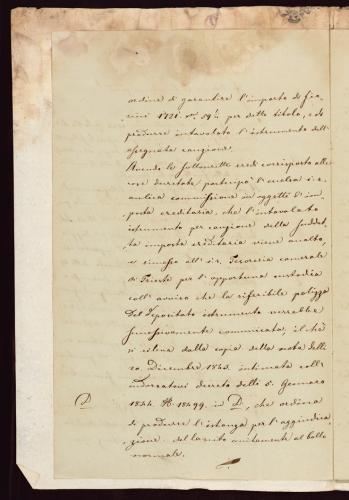 ordine di garantire l'importo di fio-
rini 1721. Car. 59¼ per detto titolo, e di
produrre intavolato l'istrumento dell'
assegnata cauzione.
Avendo la sottoscritta eredi corrisposto alle
cose decretate, participò l'inclita i. r.
antica commissione in oggetti d'im-
posta ereditaria, che l'intavolato
istrumento per cauzione della suddet-
ta imposta ereditaria viene accolto,
e rimesso all'i. r. Tesoreria camerale
di Trieste per l'opportuna custodia
coll' avviso che la riferibile polizza
del depositato istrumento verrebbe
successivamente comunicata, il che
si rileva dalla copia della nota delli
20. Dicembre 1843. intimata coll'
indorsatovi decreto delli 5. Gennaro
D 1844. N. 18499. in D, che ordina
di produrre l'istanza per l'aggiudica-
zione del lascito unitamente al bollo
normale.